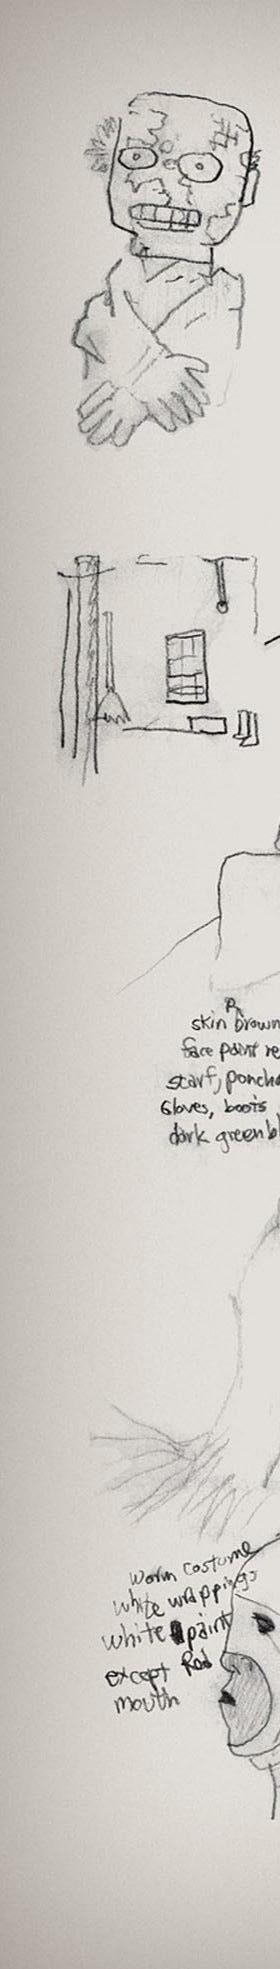 skin brown
face paint re
scarf, poncho
Gloves, boots
dark green bl
worm costume
white wrappings
white paint
except Red
mouth